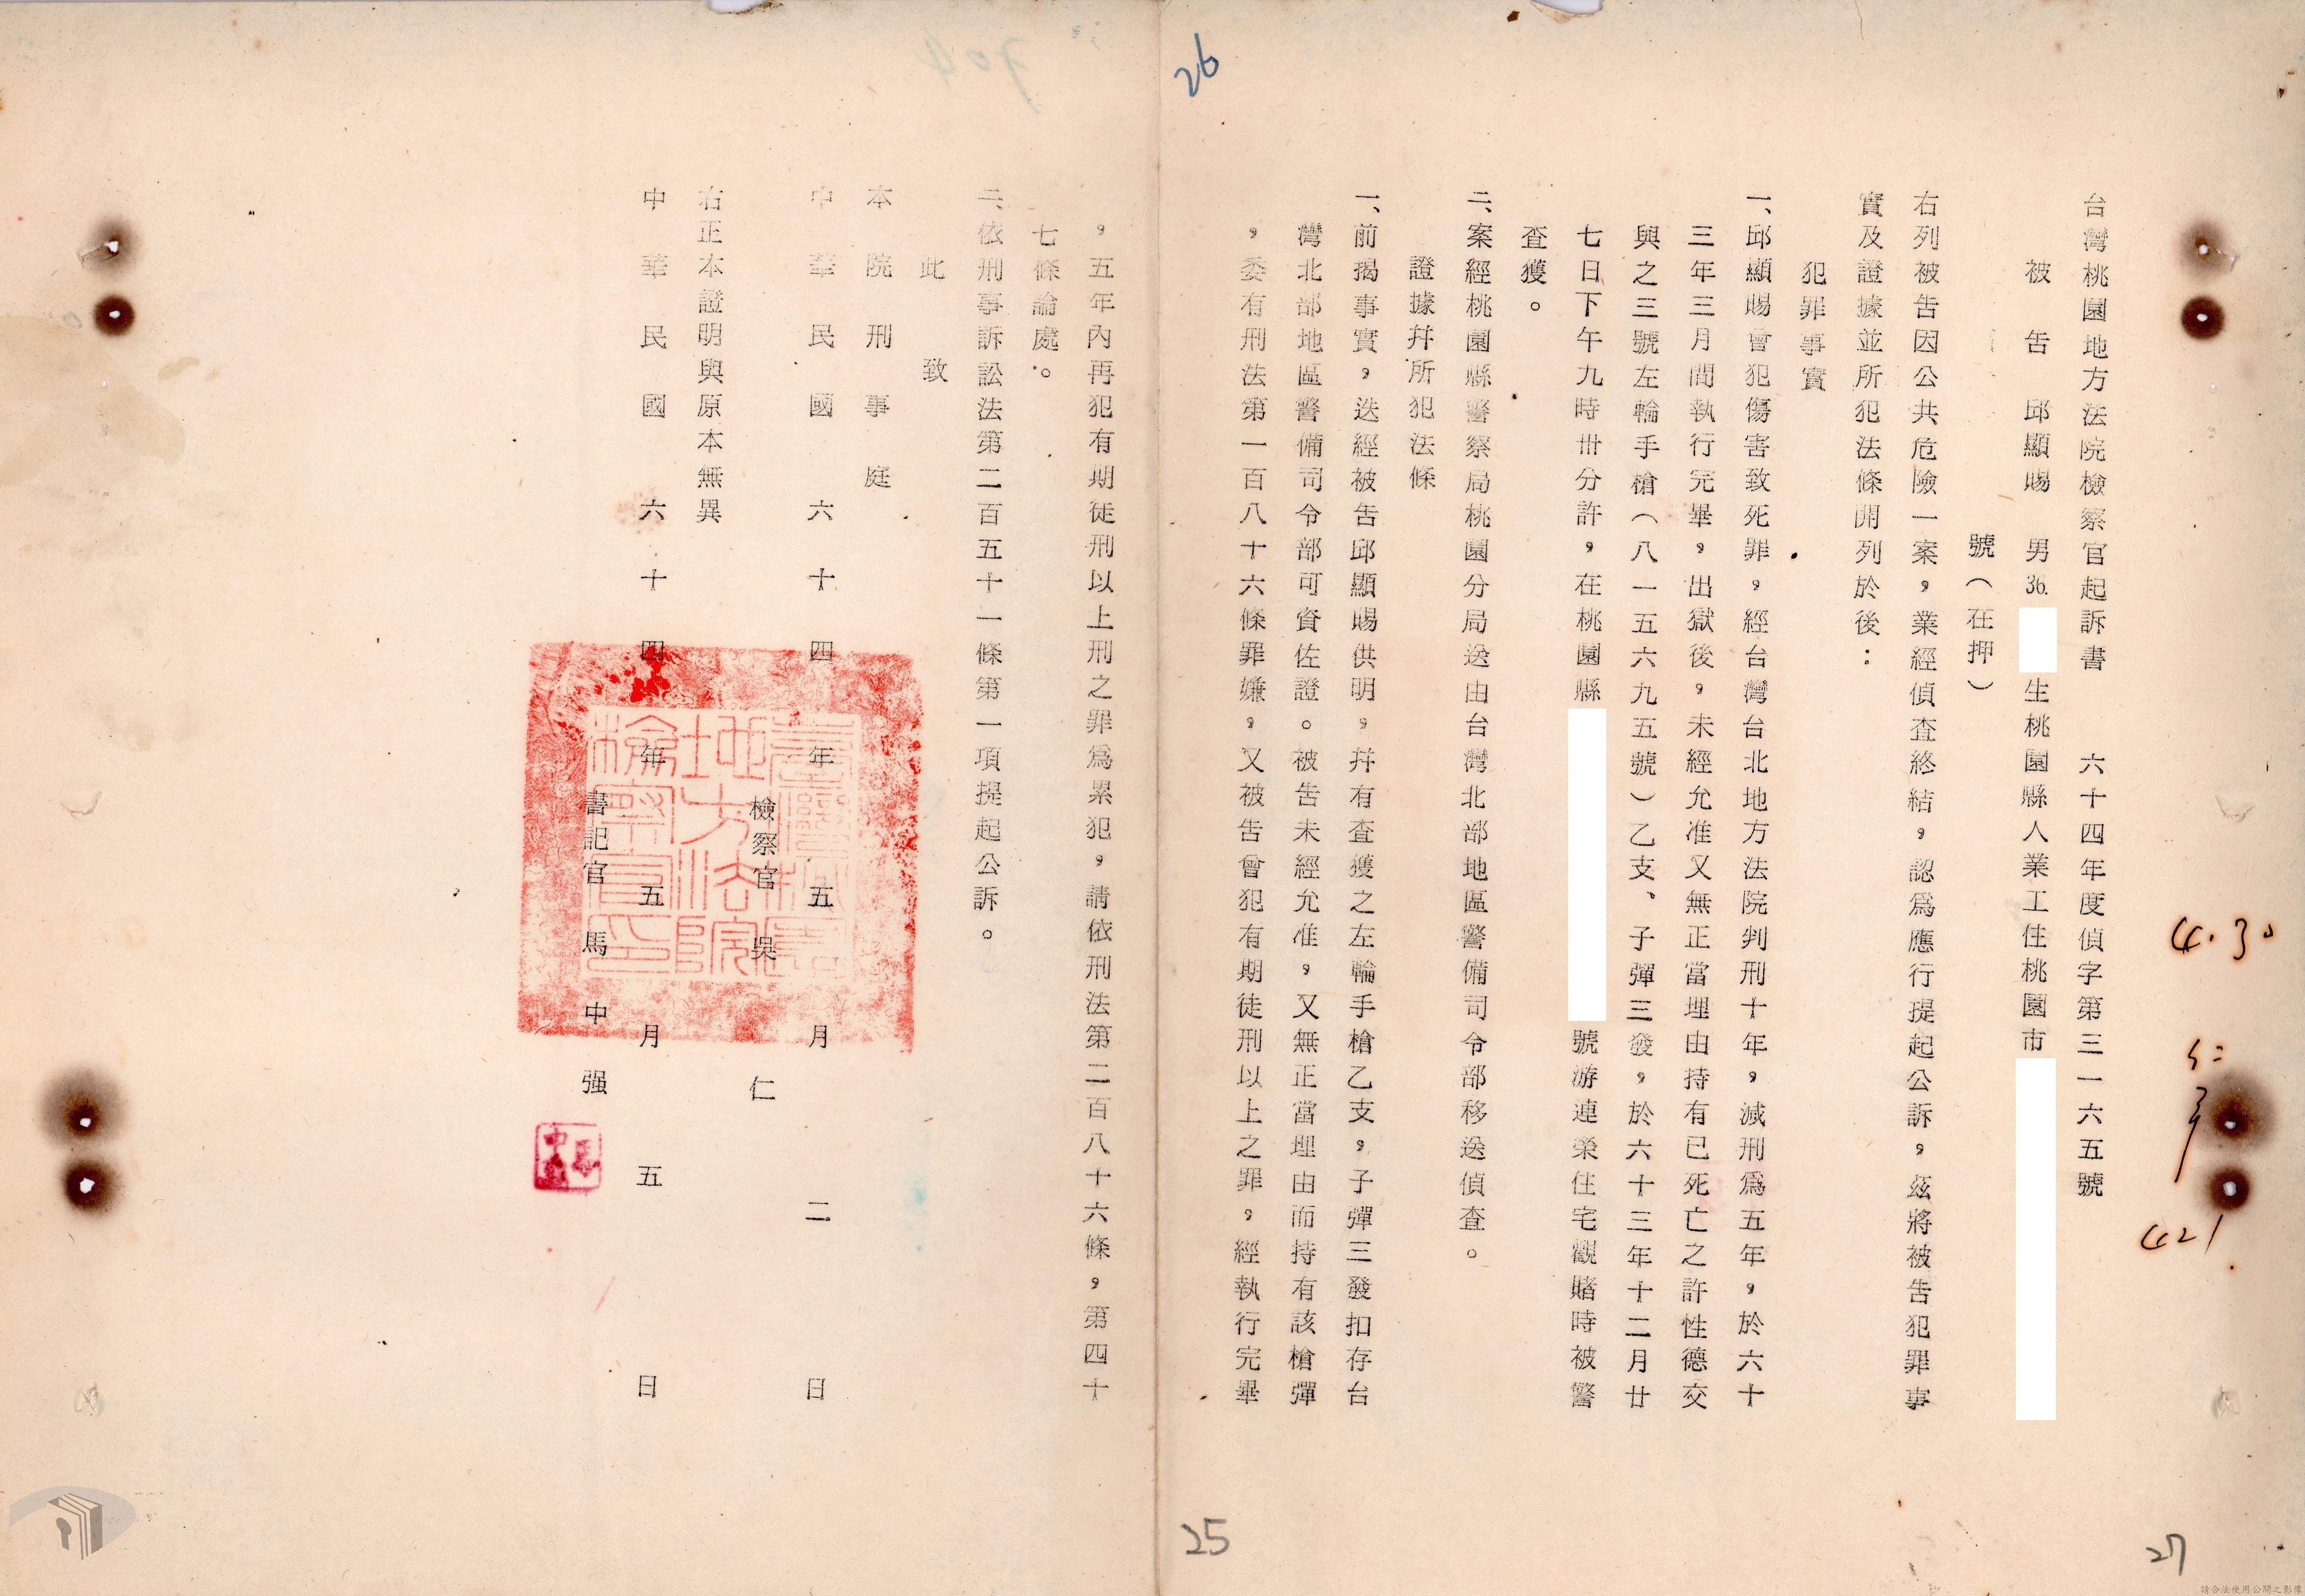 台灣桃園地方法院檢察官起訴書　六十四年度偵字第三一六五號
被告　邱顯賜　男36.　生桃園縣人業工住桃園市
號（在押）
右列被告因公共危險一案，業經偵查終結，認為應行提起公訴，茲將被告犯罪事
實及證據並所犯法條開列於後：
犯罪事實
一、邱顯賜曾犯傷害致死罪，經台灣台北地方法院判刑十年，減刑爲五年，於六十
三年三月間執行完畢，出獄後，未經允准又無正當理由持有已死亡之許性德交
與之三號左輪手槍（八一五六九五號）乙支、子彈三發，於六十三年十二月廿
七日下午九時卅分許，在桃園縣　號游連榮住宅觀賭時被警
查獲。
二、案經桃園縣警察局桃園分局送由台灣北部地區警備司令部移送偵查。
證據幷所犯法條
一、前揭事實，迭經被告邱顯賜供明，幷有查獲之左輪手槍乙支，子彈三發扣存台
灣北部地區警備司令部可資佐證。被告未經允准，又無正當理由而持有該槍彈
，委有刑法第一百八十六條罪嫌，又被告曾犯有期徒刑以上之罪，經執行完畢
，五年內再犯有期徒刑以上刑之罪爲累犯，請依刑法第二百八十六條，第四十
七條論處。
二、依刑事訴訟法第二百五十一條第一項提起公訴。
此　致
本院刑事庭
中華民國六十四年五月二日
檢察官　吳　仁
右正本證明與原本無異
中華民國六十四年五月五日
書記官　馬中强
臺灣桃園
地方法院
檢察官印
26
25
27
4.30
421
請合法使用公開之影像